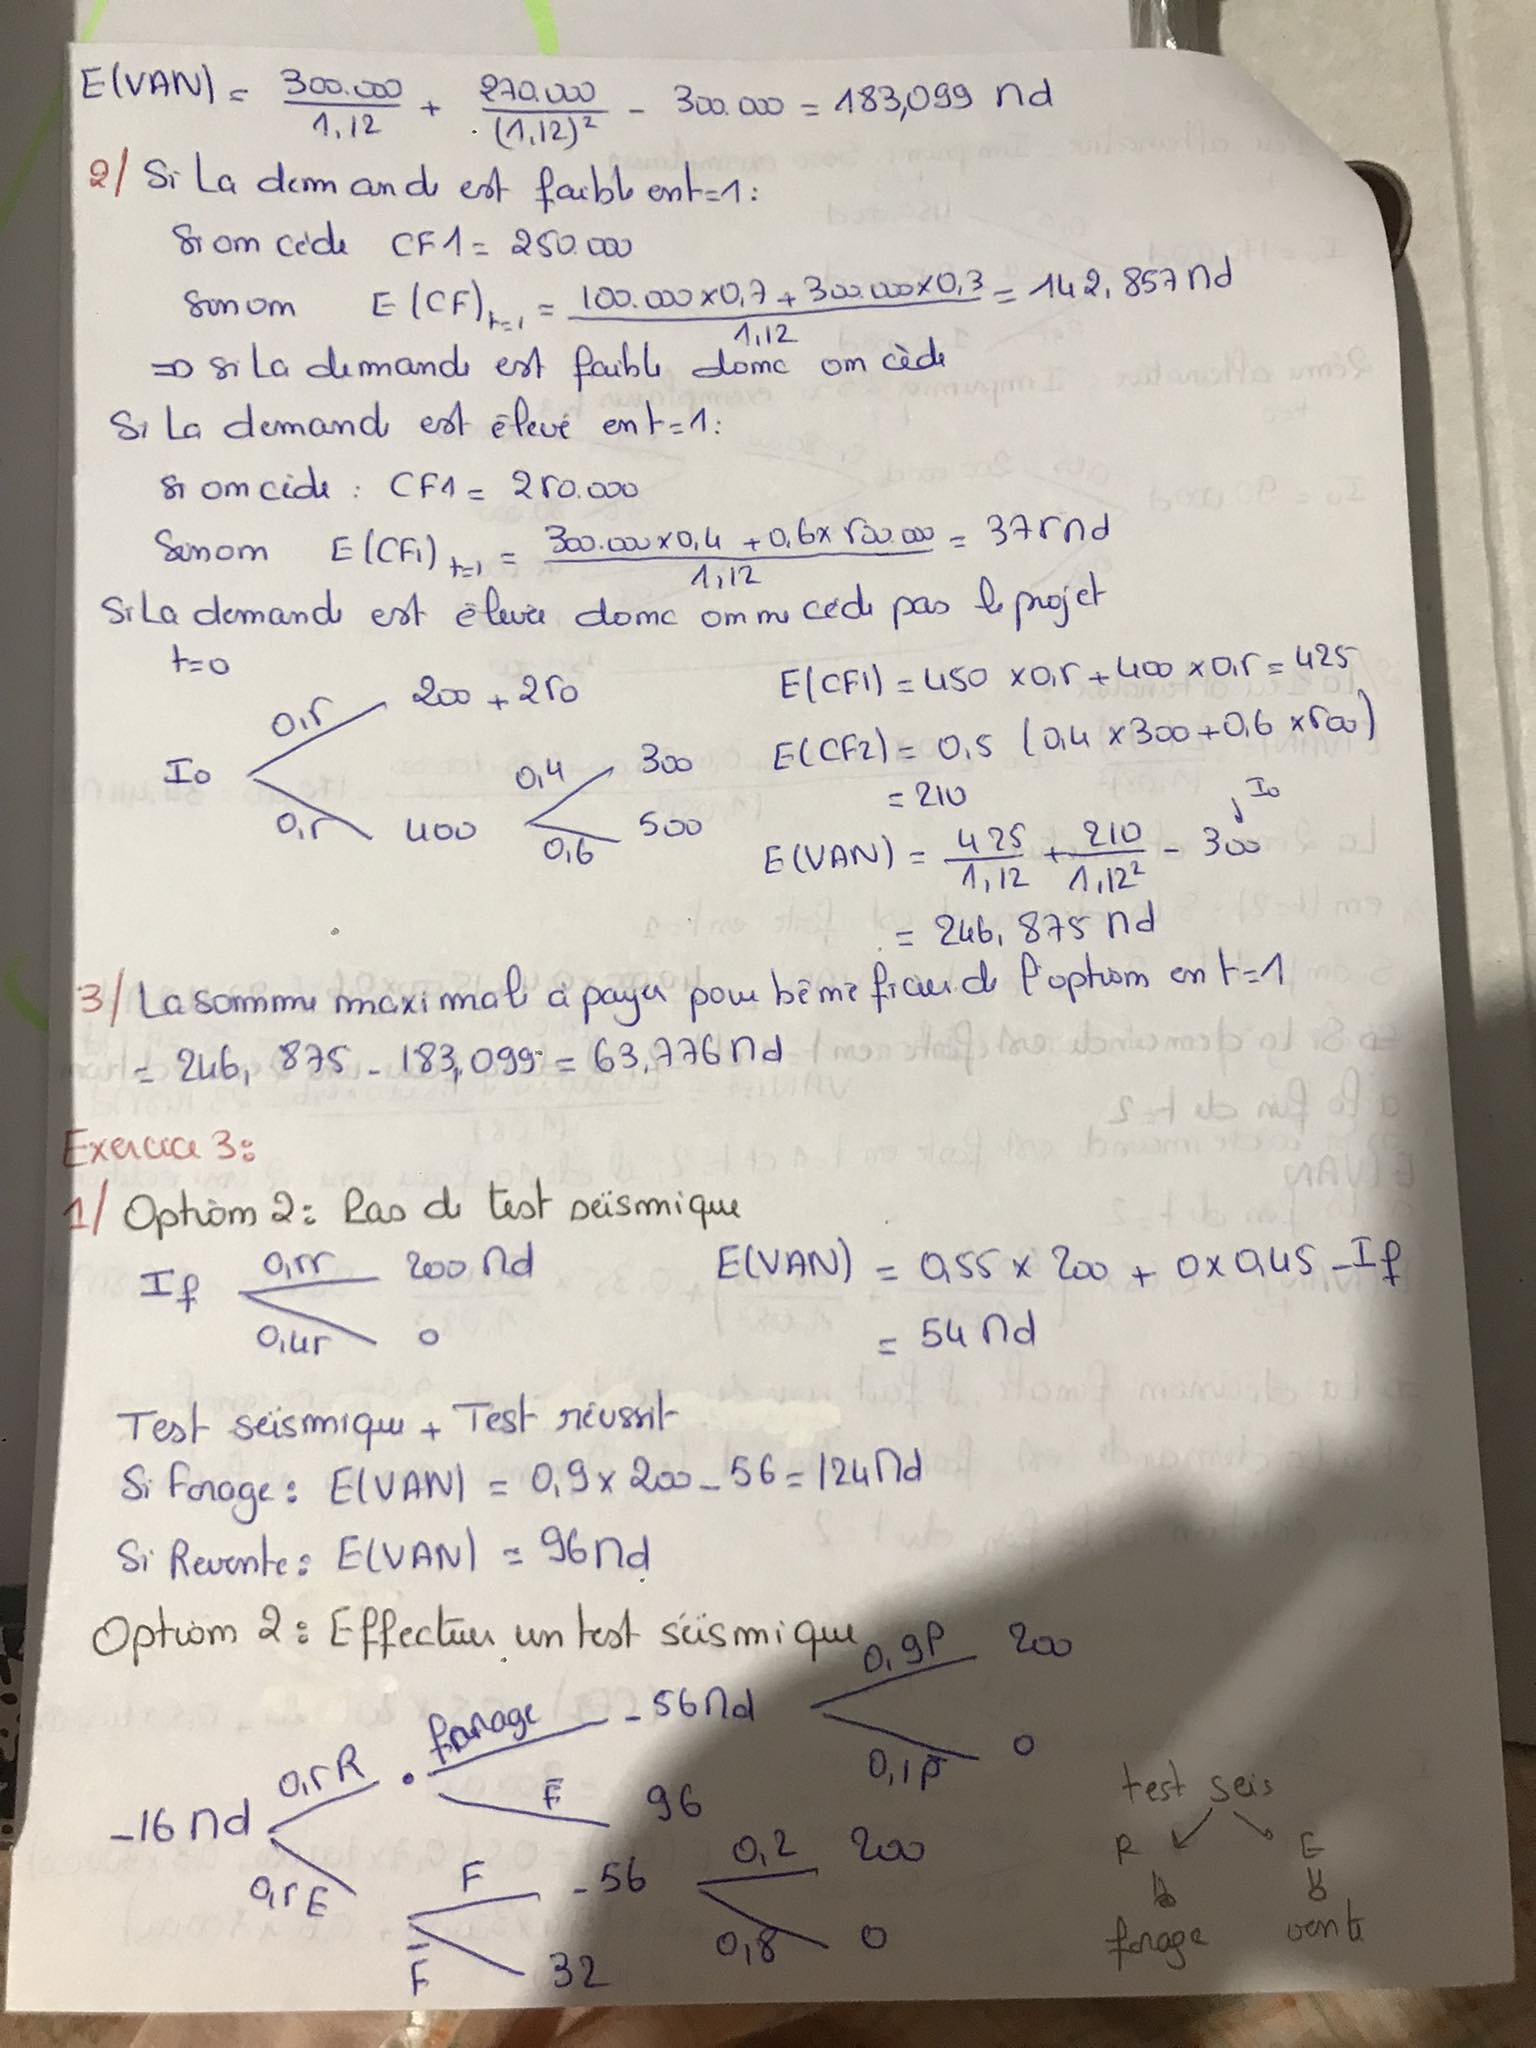 E(VAN) = 300.000/1,12 + 270.000/(1,12)² - 300.000 = 183,099 nd
2/ Si La demande est faible ent=1:
Si on cède CF1 = 250.000
Sinon E(CF)t=1 = (100.000 x 0,7 + 300.000 x 0,3)/1,12 = 142,857 nd
=> si La demande est faible donc on cède
Si La demande est élevé en t=1:
si on cède : CF1 = 250.000
Sinon E(CF1)t=1 = (300.000 x 0,4 + 0,6 x 500.000)/1,12 = 375 nd
Si La demande est élevée donc on ne cède pas le projet
t=0
0,5 200 + 250
E(CF1) = 450 x 0,5 + 400 x 0,5 = 425
I0 0,4 300
E(CF2) = 0,5 (0,4 x 300 + 0,6 x 500)
= 210
0,5 400 0,6 500
I0
E(VAN) = 425/1,12 + 210/1,12² - 300
= 246,875 nd
3/ La somme maximale à payer pour bénéficier de l'option en t=1
= 246,875 - 183,099 = 63,776 nd
Exercice 3:
1/ Option 2: Pas de test seïsmique
If 0,55 200 nd
0,45 0
E(VAN) = 0,55 x 200 + 0 x 0,45 - If
= 54 nd
Test seïsmique + Test réussit
Si Forage: E(VAN) = 0,9 x 200 - 56 = 124 nd
Si Revente: E(VAN) = 96 nd
Option 2: Effectuer un test séismique
0,9P 200
forage - 56 nd
0,1P̄ 0
0,5R
F̄ 96
-16 nd
0,5E
F - 56 0,2 200
0,8 0
F̄ 32
test seis
R E
forage vente